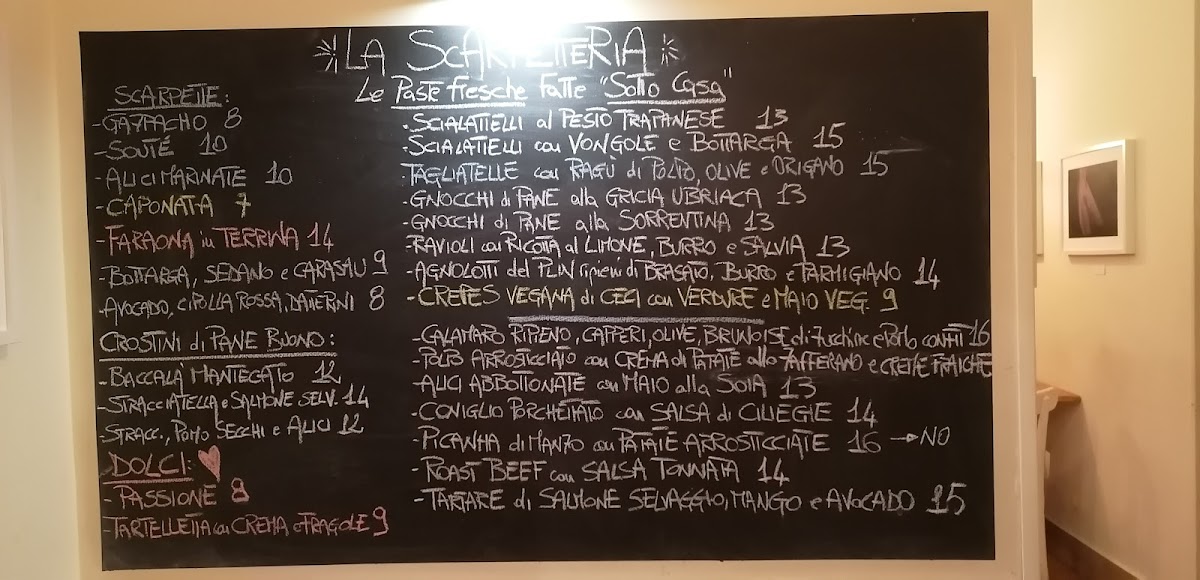 LA SCARPETTERIA
Le Paste fresche Fatte "Sotto Casa"
SCARPETTE:
-GAZPACHO 8
-SOUTÉ 10
-ALICI MARINATE 10
-CAPONATA 7
-FARAONA in TERRINA 14
-BOTTARGA, SEDANO e CARASAU 9
-AVOCADO, CIPOLLA ROSSA, DATTERNI 8
CROSTINI di PANE BUONO:
-BACCALÀ MANTECATO 12
-STRACCIATELLA e SALMONE SELV. 14
-STRACC., POMO SECCHI e ALICI 12
DOLCI:
-PASSIONE 8
-TARTELLETTA con CREMA e FRAGOLE 9
-SCIALATIELLI al PESTO TRAPANESE 13
-SCIALATIELLI con VONGOLE e BOTTARGA 15
-TAGLIATELLE con RAGÙ di POLPO, OLIVE e ORIGANO 15
-GNOCCHI di PANE alla GRICIA UBRIACA 13
-GNOCCHI di PANE alla SORRENTINA 13
-RAVIOLI con RICOTTA al LIMONE, BURRO e SALVIA 13
-AGNOLOTTI del PLIN ripieni di BRASATO, BURRO e PARMIGIANO 14
-CREPES VEGANA di CECI con VERDURE e MAIO VEG. 9
-CALAMARO RIPIENO, CAPPERI, OLIVE, BRUNOISE di Zucchine e Pom.lo confit 16
-POLPO ARROSTICCIATO con CREMA di PATATE allo ZAFFERANO e CREME FRAICHE
-ALICI ABBOTTONATE con MAIO alla SOIA 13
-CONIGLIO PORCHETTATO con SALSA di CILIEGIE 14
-PICANHA di MANZO con PATATE ARROSTICCIATE 16 → NO
-ROAST BEEF con SALSA TONNATA 14
-TARTARE di SALMONE SELVAGGIO, MANGO e AVOCADO 15